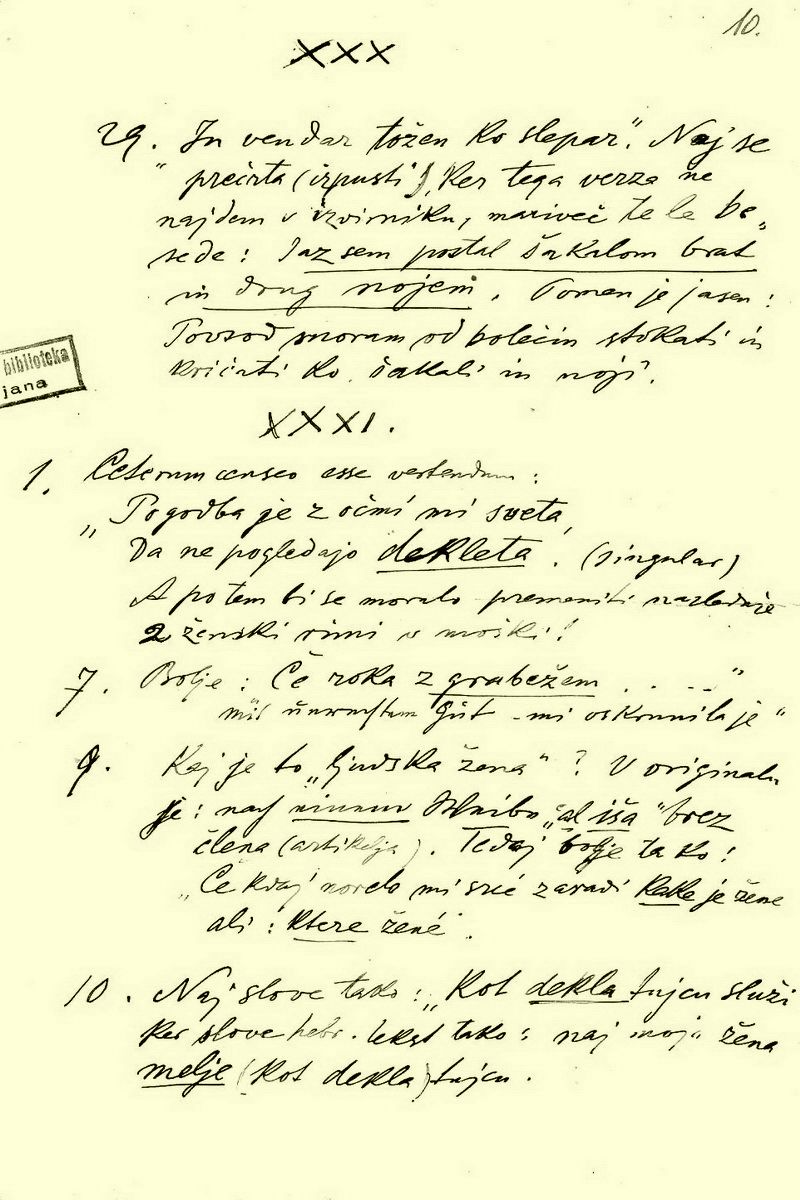 10.
XXX
29. In vendar tožen ko slepar". Naj se
prečrta (izpusti), ker tega verza ne
najdem v izvirniku, mariveč te le be„
sede: Jaz sem postal šakalom brat
in drug nojem. Pomen je jasen:
Povsod moram od bolečin stokati in
kričati ko šakali in noji.
biblioteka
jana
XXXI.
1. Ceterum censeo esse vertendum:
„Pogodba je z očmi mi sveta,
Da ne pogledajo dekleta. (singular)
A potem bi se moralo premeniti naslednje
2 ženski rimi v moški!
7. Bolje: Če roka z grabežem . . . . "
Gut - mi oskrunila je"
9. Kaj je to „ljudska žena" ? V originalu
je: nach einem „al iša" brez
člena (artikelja). Tedaj bolje tako:
„Če kdaj norelo mi srcé zaradi kake je žene
ali: ktere žené".
10. Naj slove tako: „Kot dekla tujcu služi
ker slove hebr. tekst tako: naj moja žena
melje (kot dekla) tujcu.